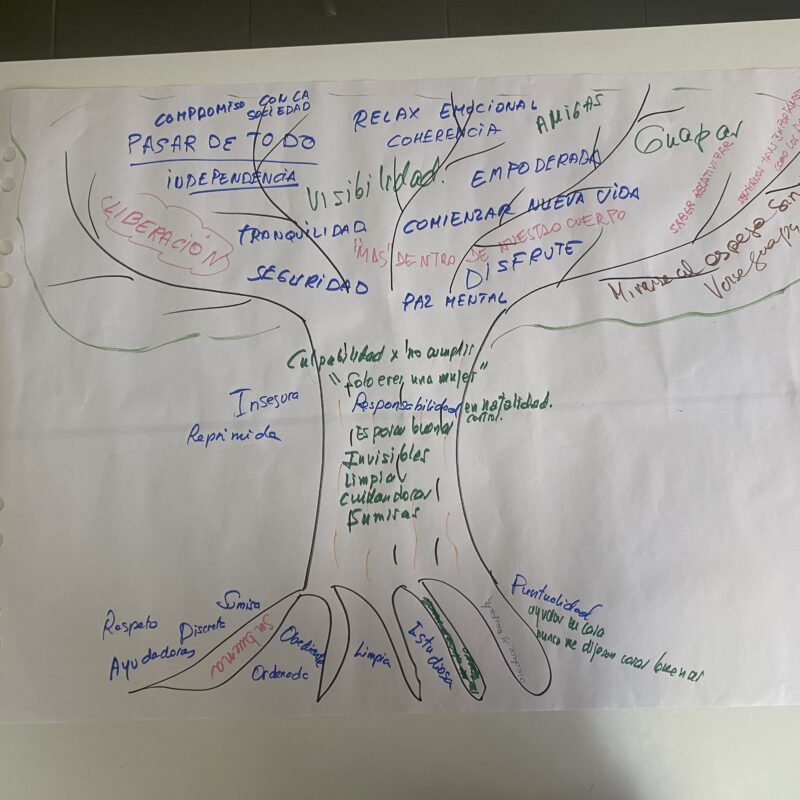 COMPROMISO CON LA
SOCIEDAD
PASAR DE TODO
INDEPENDENCIA
RELAX EMOCIONAL
COHERENCIA
AMIGAS
Guapas
VISIBILIDAD.
EMPODERADA
SABER RELATIVIZAR
LIBERACIÓN
TRANQUILIDAD
COMENZAR NUEVA VIDA
"MAS" DENTRO DE NUESTRO CUERPO
SEGURIDAD
DISFRUTE
PAZ MENTAL
Mirarse al espejo sin
Verse guapa
Culpabilidad x no cumplir
"Solo eres una mujer"
Insegura
Reprimida
Responsabilidad en natalidad.
control.
Esposas buenas
Invisibles
Limpias
Cuidadoras
Sumisas
Sumisa
Respeto
Discreta
Ayudadoras
Ser buena
Obediente
Ordenada
Limpia
Estudiosa
Puntualidad
ayudar en casa
nunca me dijeron cosas buenas